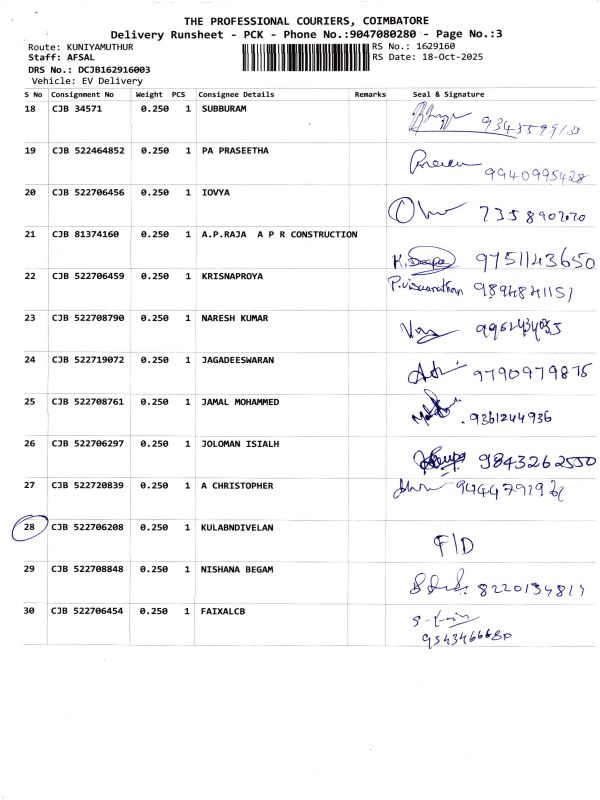 THE PROFESSIONAL COURIERS, COIMBATORE
Delivery Runsheet - PCK - Phone No.:9047080280 - Page No.:3
Route: KUNIYAMUTHUR RS No.: 1629160
Staff: AFSAL RS Date: 18-Oct-2025
DRS No.: DCJB162916003
Vehicle: EV Delivery
S No Consignment No Weight PCS Consignee Details Remarks Seal & Signature
18 CJB 34571 0.250 1 SUBBURAM
19 CJB 522464852 0.250 1 PA PRASEETHA 9940995428
20 CJB 522706456 0.250 1 IOVYA 7358907070
21 CJB 81374160 0.250 1 A.P.RAJA A P R CONSTRUCTION 9751143650
22 CJB 522706459 0.250 1 KRISNAPROYA P.viswanathan 9894841151
23 CJB 522708790 0.250 1 NARESH KUMAR
24 CJB 522719072 0.250 1 JAGADEESWARAN 9790979875
25 CJB 522708761 0.250 1 JAMAL MOHAMMED 9361244936
26 CJB 522706297 0.250 1 JOLOMAN ISIALH 9843262550
27 CJB 522720839 0.250 1 A CHRISTOPHER
28 CJB 522706208 0.250 1 KULABNDIVELAN F/D
29 CJB 522708848 0.250 1 NISHANA BEGAM 8220134814
30 CJB 522706454 0.250 1 FAIXALCB